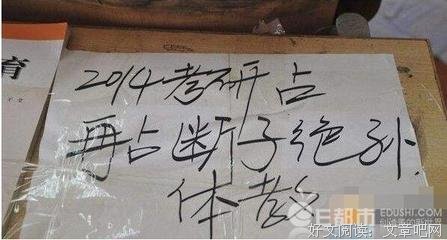 育
2014考研占
再占断子绝孙
体教
E都市
EDUSHI.COM
好文阅读：文章吧网